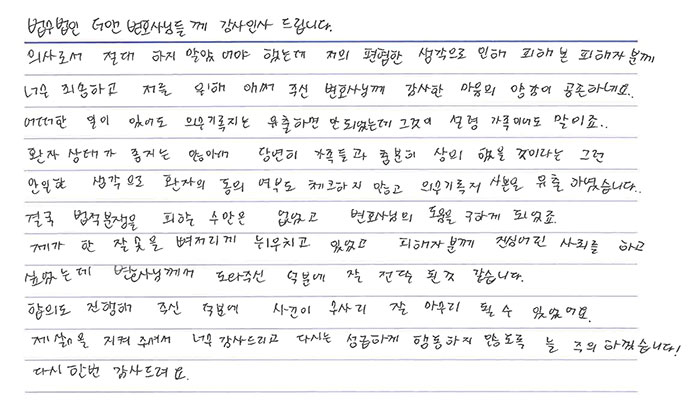 법무법인 더앤 변호사님들 께 감사인사 드립니다.
의사로서 절대 하지 말았어야 했는데 저의 편협한 생각으로 인해 피해 본 피해자분께
너무 죄송하고 저를 위해 애써 주신 변호사님께 감사한 마음의 양가이 공존하네요..
어떠한 일이 있어도 의무기록지는 유출하면 안되었는데 그것이 설령 가족이어도 말이죠..
환자 상태가 좋지는 않아서 당연히 가족들과 충분히 상의 했을 것이라는 그런
안일한 생각으로 환자의 동의 여부도 체크하지 않고 의무기록지 사본을 유출 하였습니다..
결국 법적분쟁을 피할 수만은 없었고 변호사님의 도움을 구하게 되었죠
제가 한 잘못을 뼈저리게 뉘우치고 있었고 피해자분께 진심어린 사죄를 하고
싶었는데 변호사님께서 도와주신 덕분에 잘 전달 된것 같습니다.
합의도 진행해 주신 덕분에 사건이 무사히 잘 마무리 될 수 있었어요.
제 삶을 지켜 주셔서 너무 감사드리고 다시는 성급하게 행동하지 않도록 늘 주의 하겠습니다!
다시 한번 감사드려요.